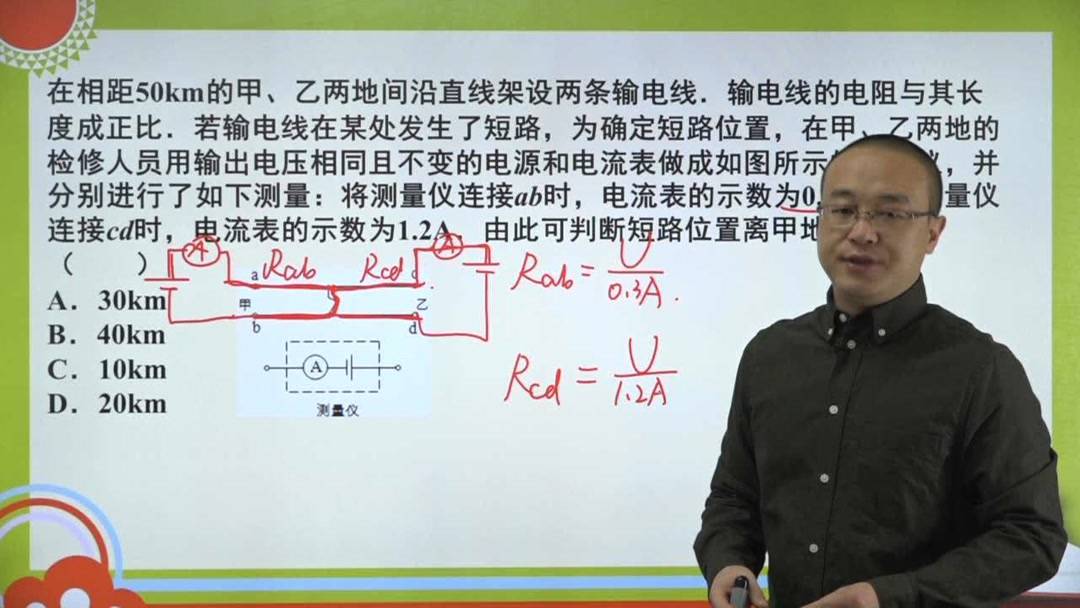 在相距50km的甲、乙两地间沿直线架设两条输电线．输电线的电阻与其长
度成正比．若输电线在某处发生了短路，为确定短路位置，在甲、乙两地的
检修人员用输出电压相同且不变的电源和电流表做成如图所示 ，并
分别进行了如下测量：将测量仪连接ab时，电流表的示数为0. 量仪
连接cd时，电流表的示数为1.2A 由此可判断短路位置离甲地
（ ）
A．30km
B．40km
C．10km
D．20km
A
A
a Rab Rcd c
甲 乙
b d
A
测量仪
Rab = U/0.3A.
Rcd = U/1.2A